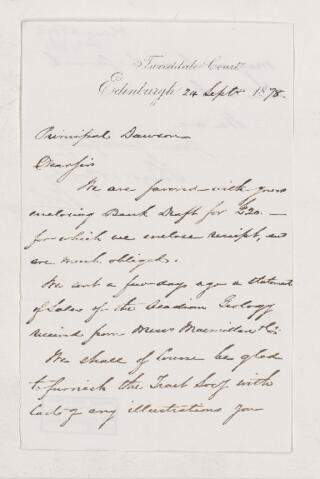 Tweeddale Court,
Edinburgh, 24 Septr 1878.
Principal Dawson
Dear Sir
We are favored with yours
enclosing Bank Draft for £20.—
for which we enclose receipt, and
are much obliged.
We sent a few days ago a statement
of Sales of the Acadian Geology
received from Messrs Macmillan & Co
We shall of course be glad
to furnish the Tract Socy with
casts of any illustrations you